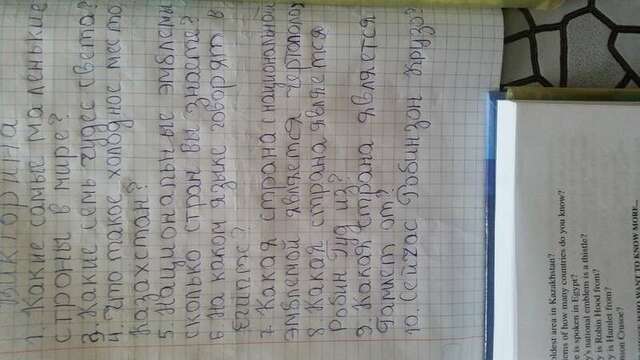 Викторина
1. Какие самые маленькие
строны в мире?
3. Какие семь чудес света?
4. Что такое холодное место
Казахстан?
5. Национальные эмблемы
сколько стран вы знаете?
6 На каком языке говорят в
Египте?
7. Какая страна с национальной
эмблемой является чертополох
8. Какая страна является
Робин Гуд из?
9. Какая страна является
Гамлет от?
10. Сейчас Робинзон Крузо?
oldest area in Kazakhstan?
ems of how many countries do you know?
e is spoken in Egypt?
y's national emblem is a thistle?
y is Robin Hood from?
y is Hamlet from?
on Crusoe?
AND TO KNOW MORE...